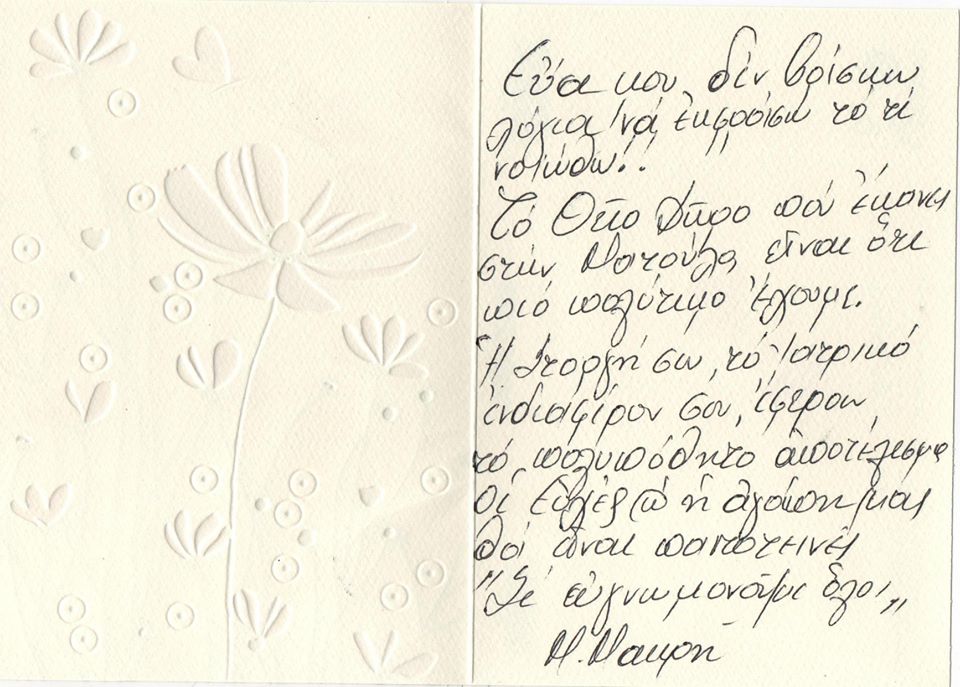 Εὔα μου, δέν βρίσκω
λόγια νά ἐκφράσω τό τί
νοιώθω!!
Τό Θεῖο Δῶρο πού ἔκανες
στήν Ματούλα εἶναι ὅτι
πιό πολύτιμο ἔχουμε.
Ἡ Στοργή σου, τό Ἰατρικό
ἐνδιαφέρον σου, ἔφεραν
τό πολυπόθητο ἀποτέλεσμα
Οἱ Εὐχές η ἀγάπη μας
θά εἶναι παντοτεινές
"Σέ εὐγνωμονοῦμε ὅλοι"
Μ. Μακρῆ